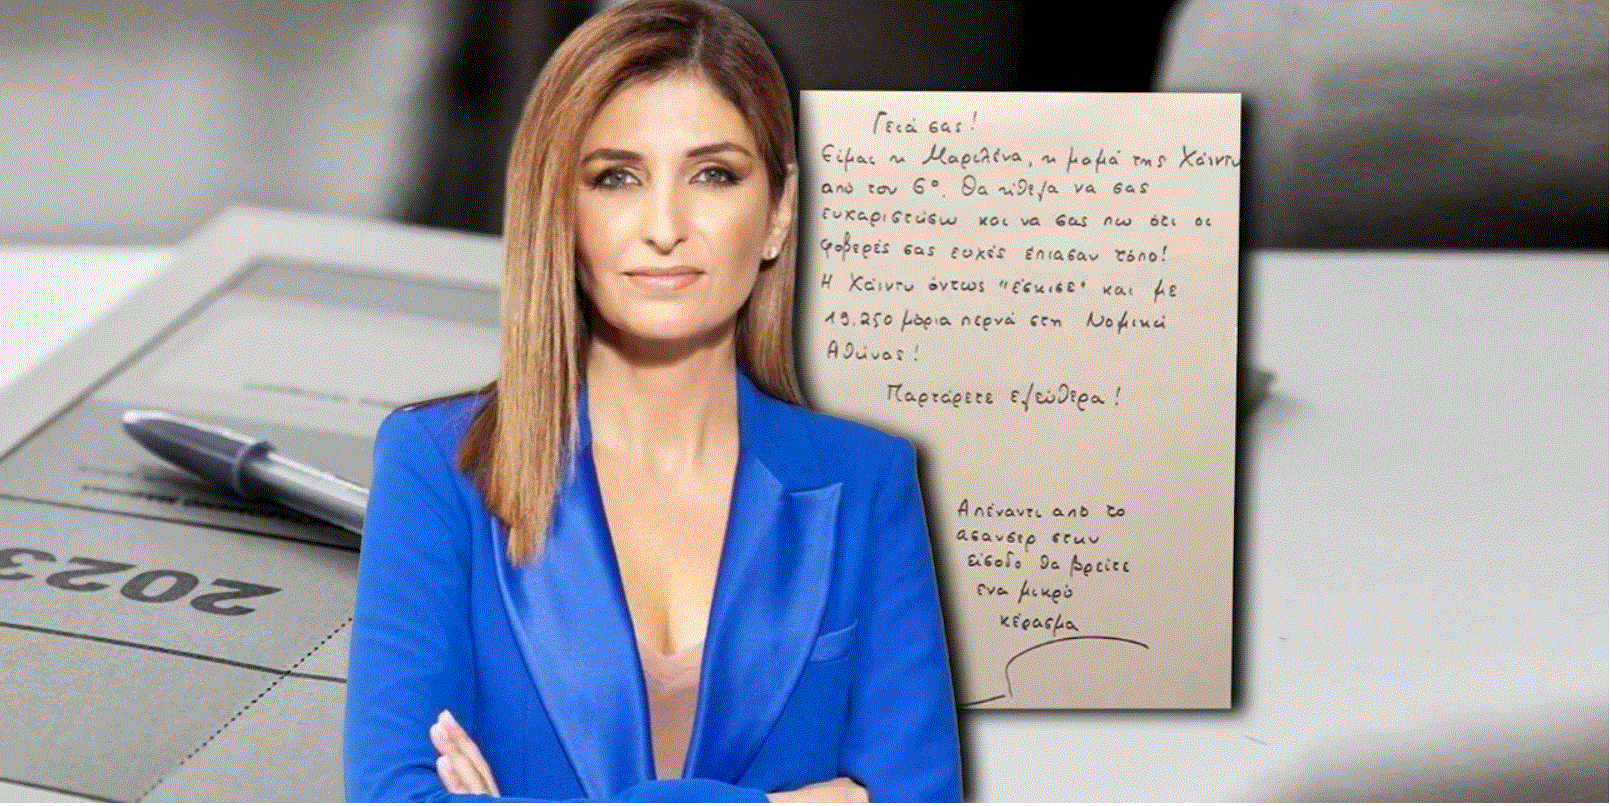 Γειά σας!
Είμαι η Μαριλένα, η μαμά της Χάιντυ
από τον 6º. Θα ήθελα να σας
ευχαριστήσω και να σας πω ότι οι
φοβερές σας ευχές έπιασαν τόπο!
Η Χάιντυ όντως "έσκισε" και με
19.250 μόρια περνά στη Νομική
Αθήνας!
Παρτάρετε ελεύθερα!
Απέναντι από το
ασανσερ στην
είσοδο θα βρείτε
ενα μικρό
κέρασμα
2023